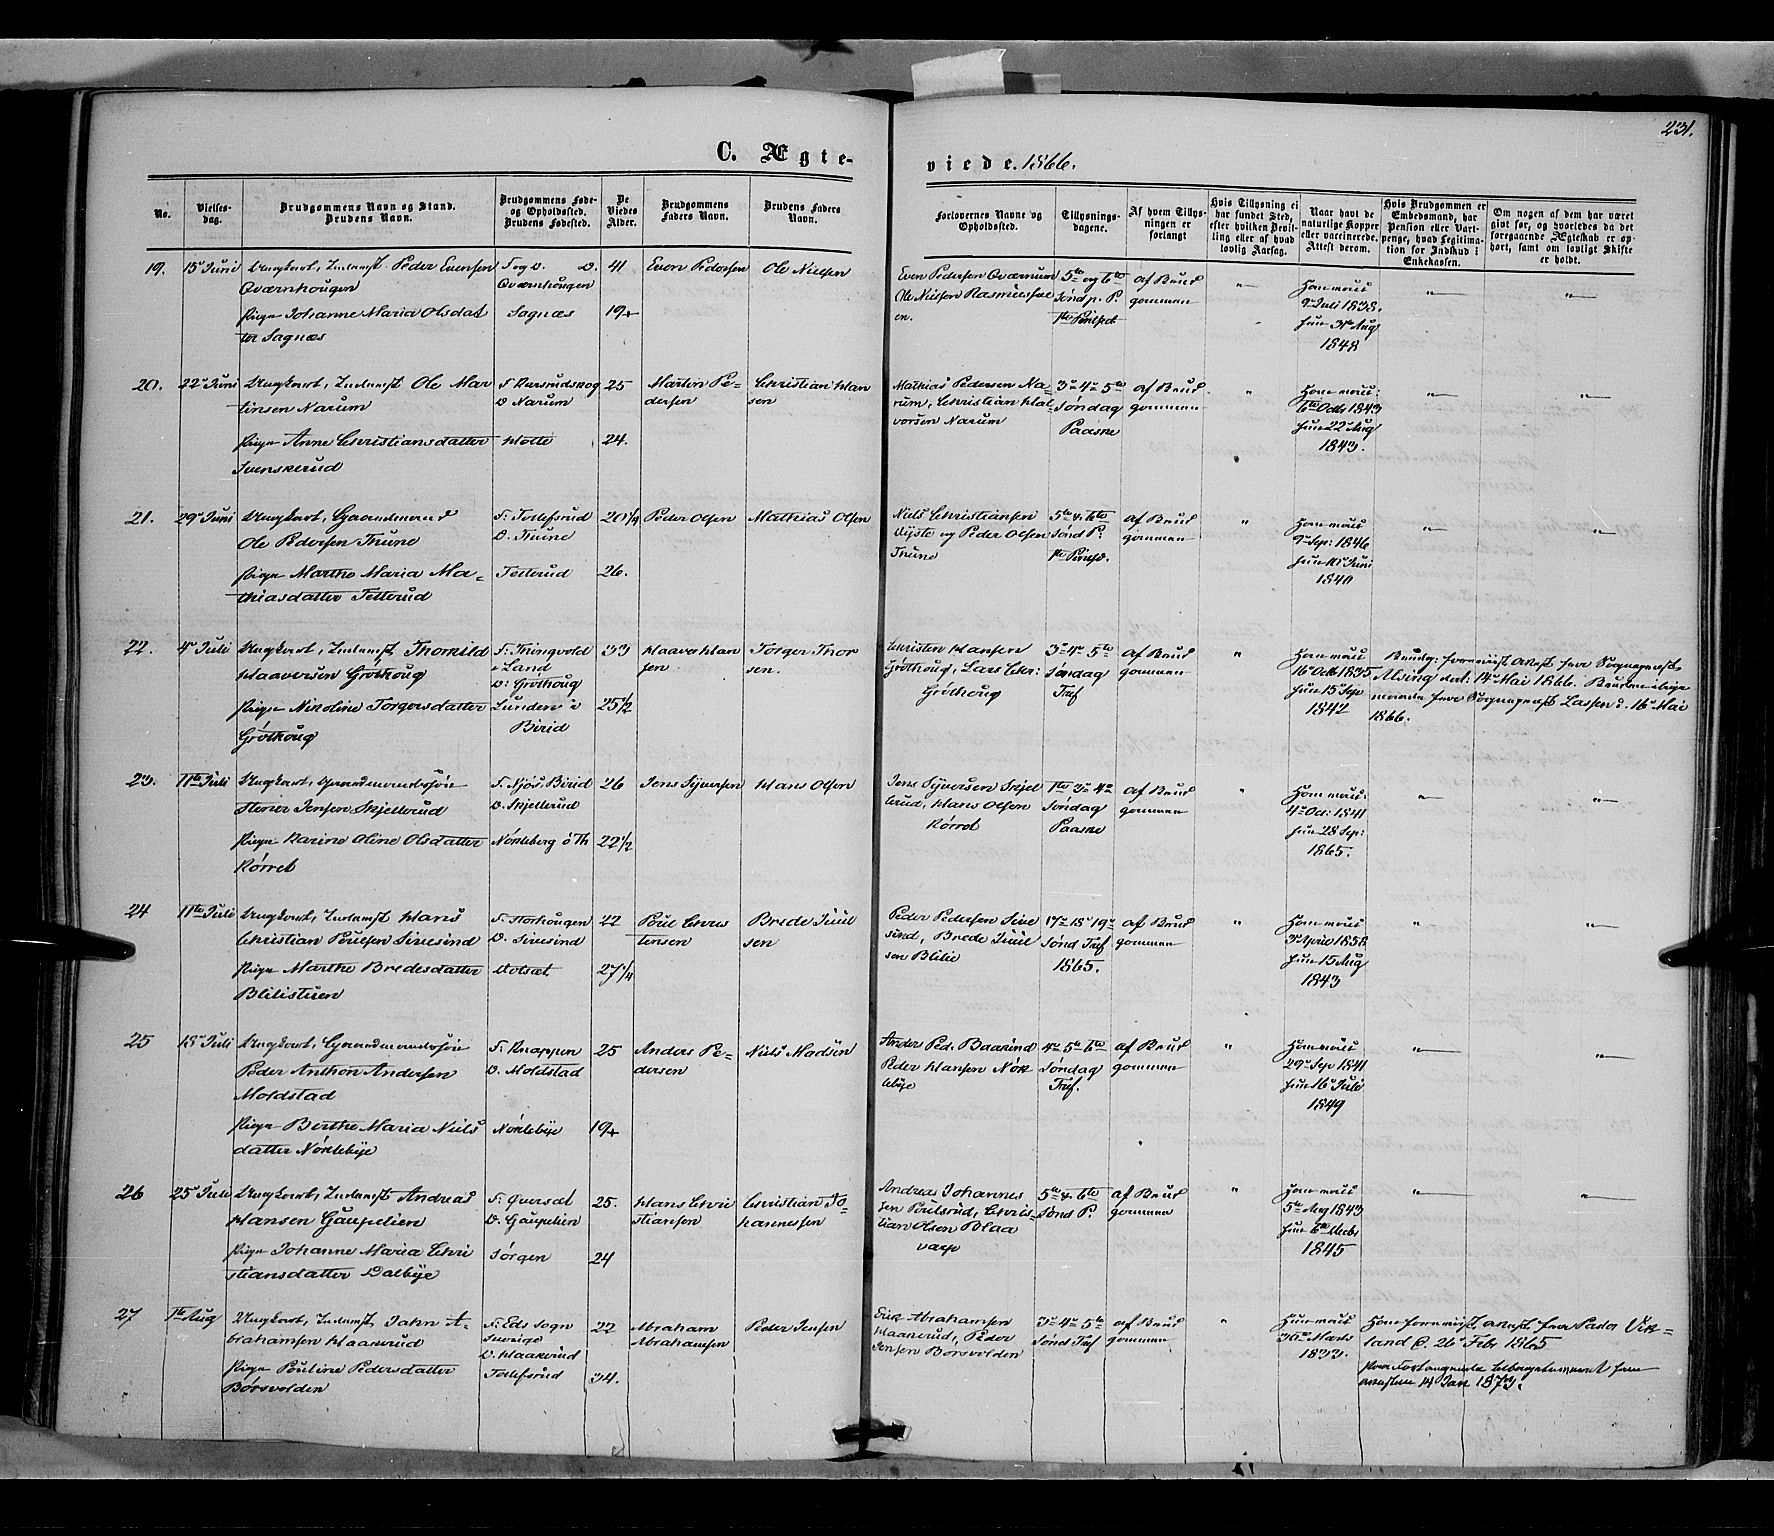 231.
C. Ægte-
viede. 1866.
No.
Vielses-
dag.
Brudgommens Navn og Stand.
Brudens Navn.
Brudgommens Føde-
og Opholdssted.
Brudens Fødested.
De
Viedes
Alder.
Brudgommens
Faders Navn.
Brudens Faders
Navn.
Forlovernes Navne og
Opholdssted.
Tillysnings-
dagene.
Af hvem Tillys-
ningen er
forlangt
Hvis Tillysning ei
har fundet Sted,
efter hvilken Bevil-
ling eller af hvad
lovlig Aarsag.
Naar havt de
naturlige Kopper
eller vaccinerede.
Attest derom.
Hvis Brudgommen er
Embedsmand, har
Pension eller Vart-
penge, hvad Legitima-
tion for Indskud i
Enkekassen.
Om nogen af dem har været
gift før, og hvorledes da det
foregaaende Ægteskab er op-
hørt, samt om lovligt Skifte
er holdt.
19.
15de Juni
Ungkarl, Inderst Peder Evensen
Qværnhougen
Pige Johanne Maria Olsdat
ter Sagnæs
F og O.
Qværnhougen
Sagnæs
41
19
Even Pedersen
Ole Nielsen
Even Pedersen Qværnum
Ole Nielsen
en.
5te og 6te
Sønd p. P
af Brud
gommen
9de Juli 1838.
hun 31te Aug
1848
20.
22de Juni
Ungkarl, Inderst Ole Mar
tinsen Narum
Pige Anne Christiansdatter
Svenskerud
O Narum
25
24.
Martin Pe-
dersen
Christian Han
sen
Mathias Pedersen Na-
rum, Christian Hal-
vorsen Narum
3de 4de 5te
Søndag
Paaske
af Brud
gommen
6te Octb 1843
hun 22de Aug
1843.
21.
29de Juni
Ungkarl, Gaardmand
Ole Pedersen Thune
Pige Marthe Maria Ma-
thiasdatter Tetterud
F. Tollefsrud
O. Thune
Tetterud
20 1/4
26.
Peder Olsen
Mathias Olsen
Niels Christiansen
og Peder Olsen
Thune
5te & 6te
Sønd P.
af Brud
gommen
9de Sep: 1846
hun Juni
1840
22.
4de Juli
Ungkarl, Inderst Thorkild
Haaversen Grøthoug
Pige Nikoline Torgersdatter
Grøthoug
F. Thingvold
i Land
O: Grøthoug
Lunden i
Birid
33
25 1/2
Haaver Han
sen
Torger Thor
sen.
Christen Hansen
Grøthoug, Lars Chr:
Grøthoug
3de 4de 5te
Søndag
Tref
af Brud
gommen
16de Octb 1835
hun 15de Sep
1842
Brudg: foreviist Attest fra Sognepræst
Alsing dat: 14de Mai 1866. Bruden lige
fra Sognepræst Lassen d. 16de Mai
1866.
23.
11te Juli
Ungkarl, Gaardmandssøn
Jensen Skjellerud
Pige Karine Oline Olsdatter
Kørret
F. Njøs, Birid
O. Skjellerud
Nøkleberg ø Th
26
22 1/2
Jens Syversen
Hans Olsen
Jens Syversen Skjel
lerud, Hans Olsen
Kørret
1te 3de 4de
Søndag
Paaske
af Brud
gommen
4de Oct: 1841
hun 28 Sep:
1865.
24
11te Juli
Ungkarl, Inderst Hans
Christian Poulsen Sivesind
Pige Marthe Bredesdatter
Blilistuen
F. Storhougen
O. Sivesind
22
27 1/4
Poul Chris
tensen
Brede Juul
sen
Peder Pedersen Sive
sind, Brede Juul
sen Blilie
17de 18de 19de
Sønd Tref
1865.
af Brud
gommen
3de April 1858
hun 15 Aug
1843
25
18de Juli
Ungkarl, Gaardmandssøn
Peder Anthon Andersen
Moldstad
Pige Berthe Maria Niels
datter Nøklebye
F. Knappen
O. Moldstad
Nøklebye
25
19
Anders Pe-
dersen
Niels Madsen
Anders Ped. Baasind
Peder Hansen Nøk
lebye
4de 5te 6te
Søndag
Tref.
af Brud
gommen
29de Sep 1841
hun 16de Juli
1849
26
25de Juli
Ungkarl, Inderst Andreas
Hansen Gaupelien
Pige Johanne Maria Chri
stiansdatter Dalbye
F. Qversæt
O. Gaupelien
Sørgen
25.
24
Hans Chri
stiansen
Christian Jo-
hannessen
Andreas Johannes
sen Poulsrud, Chris-
tian Olsen Blaa
varp
5te & 6te
Sønd P.
af Brud
gommen
5te Aug 1843
hun 6te Decbr
1845
27
1te Aug
Ungkarl, Inderst Jahn A-
brahamsen Haakerud
Pige Pouline Pedersdatter
Børsvolden
F. Eds Sogn
Sverige
O. Haakerud
Tollefsrud
22
34.
Abraham
Abrahamsen
Peder Jensen
Erik Abrahamsen
Haakerud, Peder
Jensen Børsvolden
3de 4de 5te
Sønd Tref
af Brud
gommen
30te Marts
1833.
Han foreviist Attest fra Pastor Vik-
land C. 26de Febr 1865
14 Jan 1873.